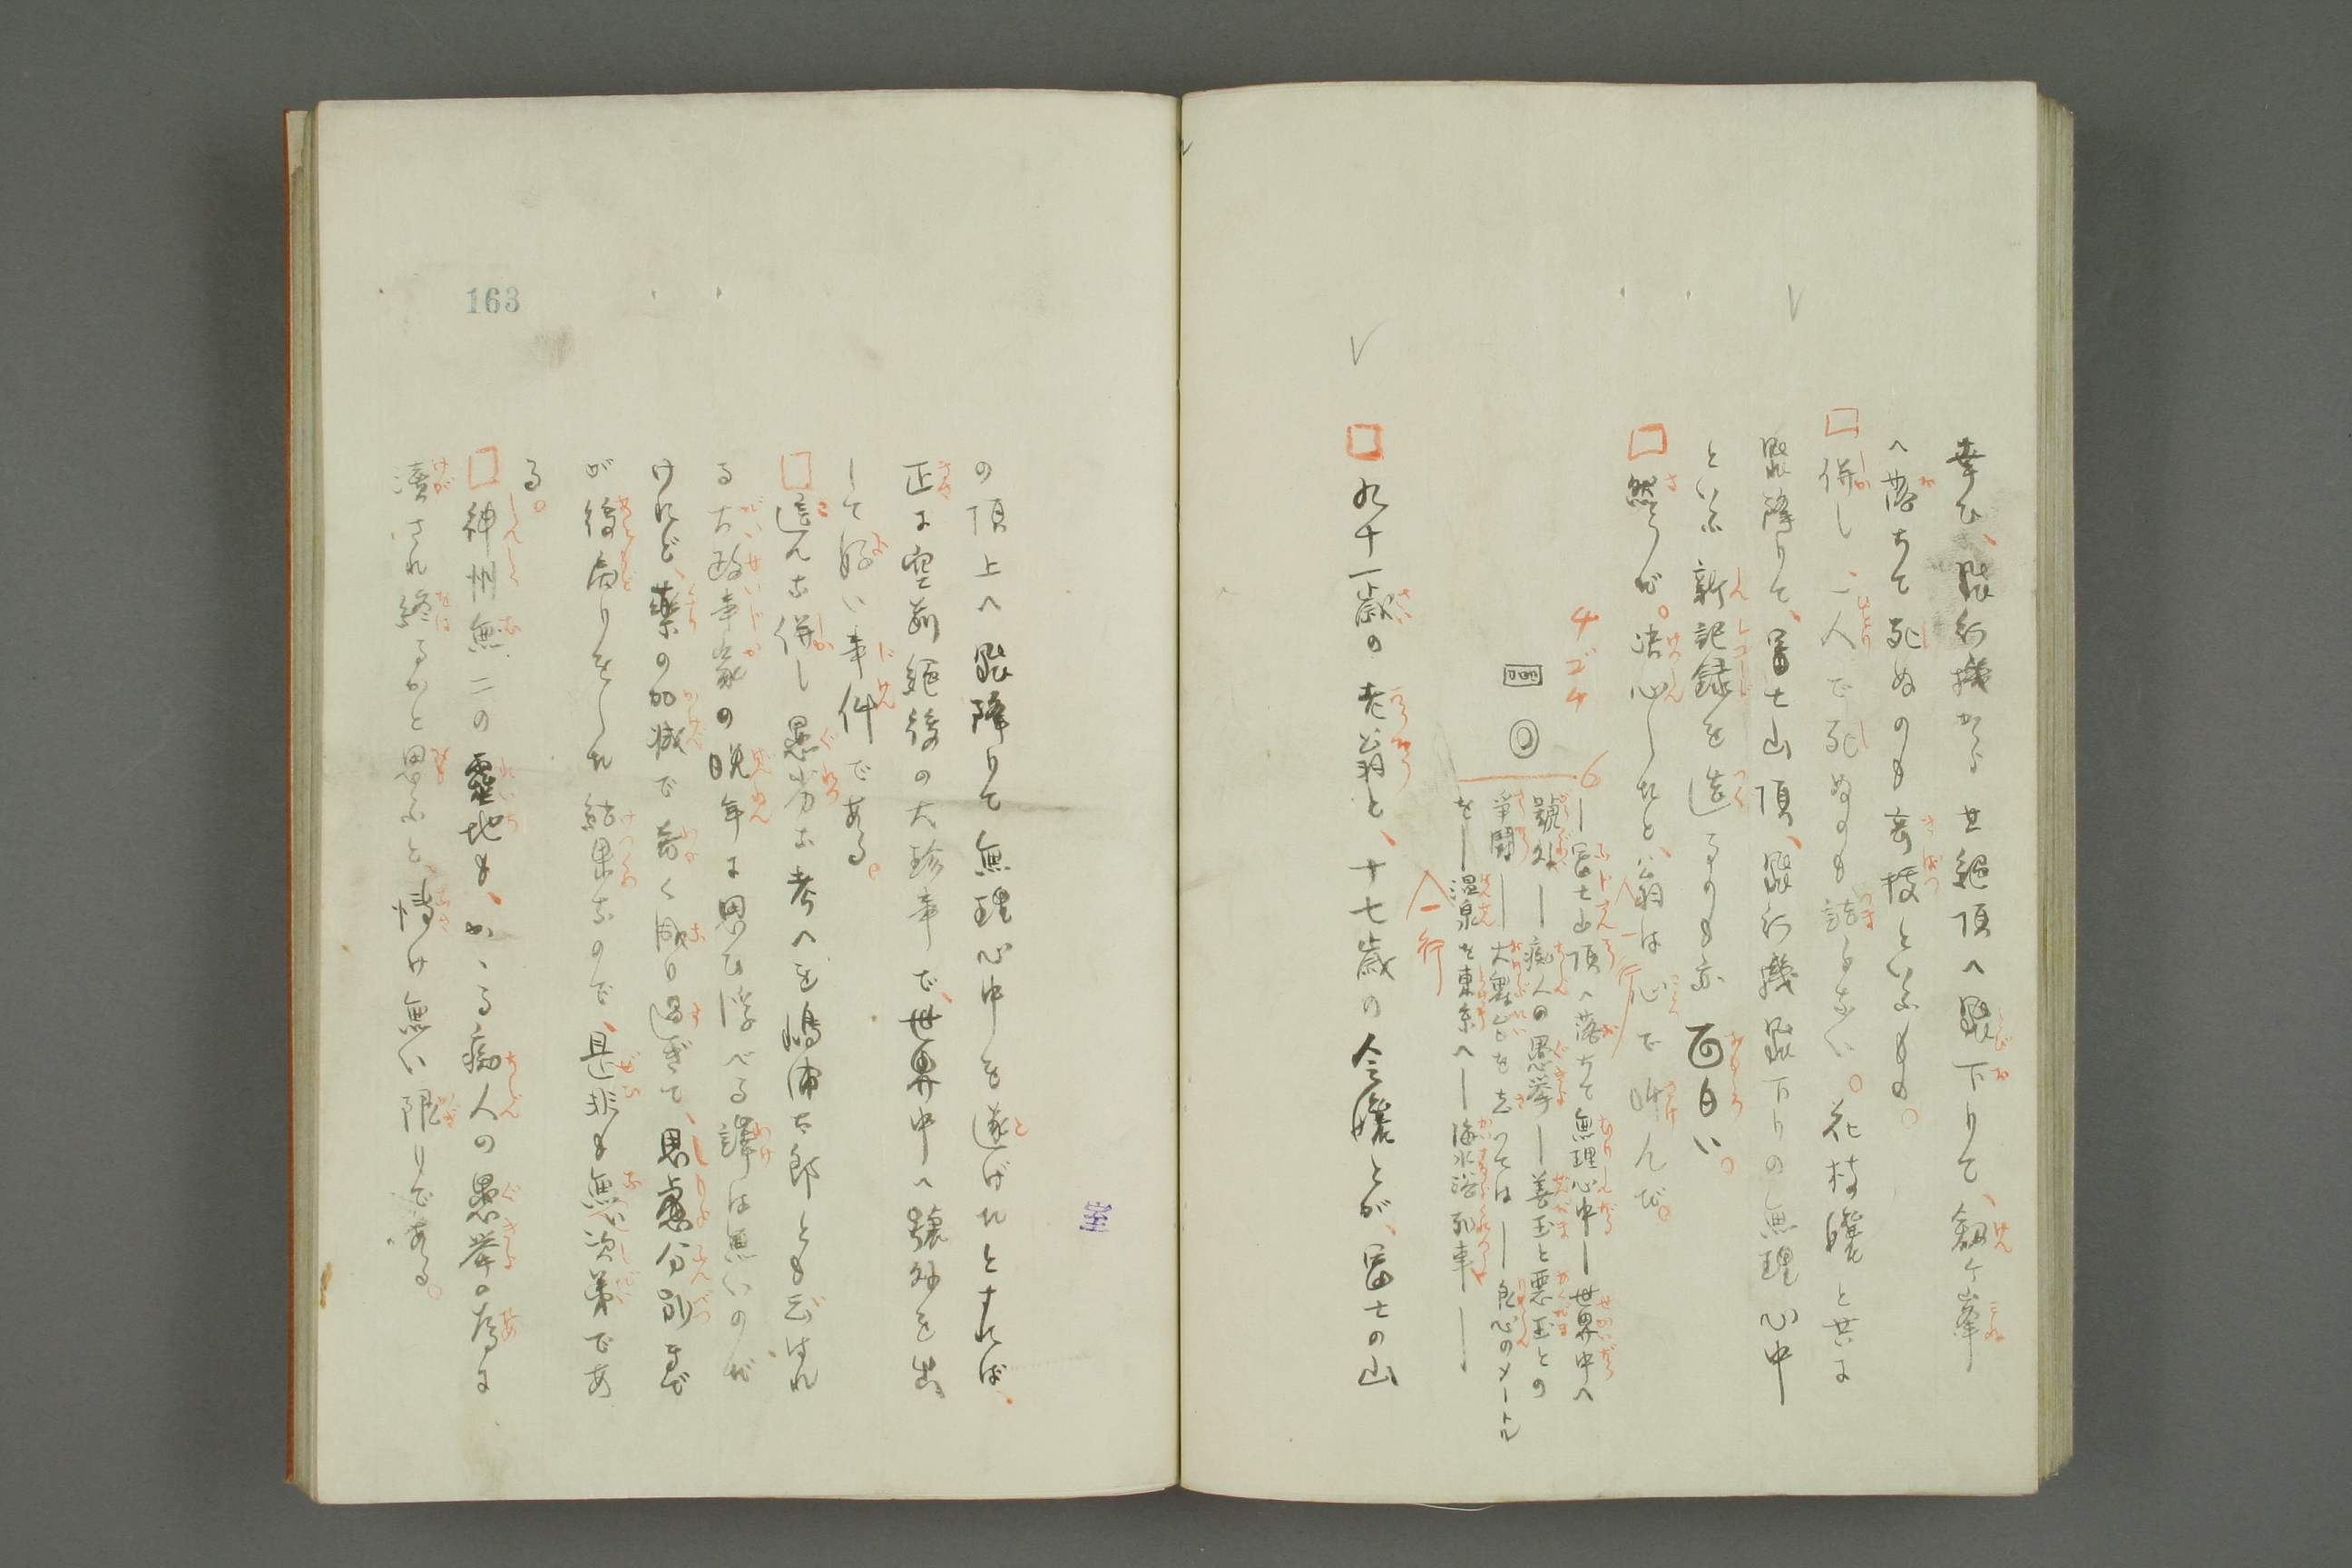 幸ひ、飛行機から其絶頂へ飛下りて、劔ヶ峯
へ落ちて死ぬのも奇抜といふもの。
□併し、一人で死ぬのも詰らない。花枝孃と共に
飛降りて、富士山頂、飛行機飛下りの無理心中
といふ新記録を造るのも亦面白い。
□然うだ。决心したと、翁は心で叫んだ。
4ゴ4
回
6
―富士山頂へ落ちて無理心中―世界中へ
號外―痴人の愚擧―善玉と悪玉との
爭鬪―大奥山を去つては―良心のメートル
を―温泉を東京へ―海水浴列車――
一行
一行
□九十一歳の老翁と、十七歳の令孃とが、富士の山
の頂上へ飛降りて無理心中を遂げたとすれば、
正に空前絶後の大珍事で、世界中へ號外を出
して好い事件である。
□這んな併し愚劣な考へを嶋浦太郎とも云はれ
る大政事家の晩年に思ひ浮べる譯は無いのだ
けれど、藥の加減で若く成り過ぎて、思慮分別まで
が後戻りをした結果なので、是非も無い次第であ
る。
□神州無二の靈地も、かゝる痴人の愚擧の為に
瀆され終るかと思ふと、情け無い限りである。
163